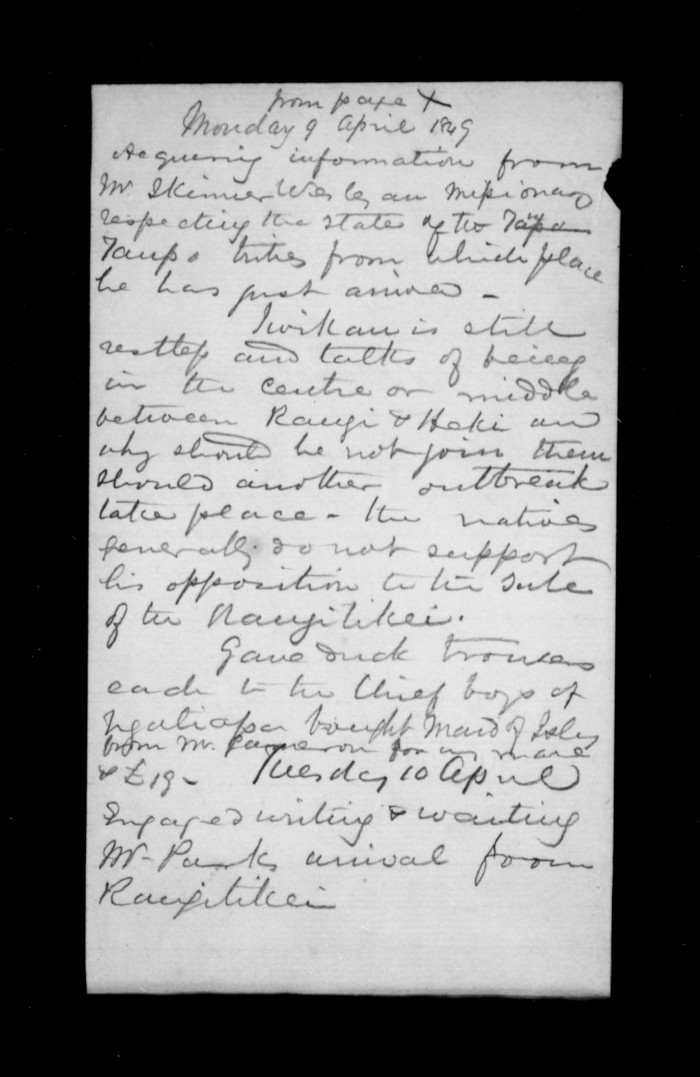 from page X
Monday 9 April 1849
Acquiring information from
Mr Skinner Wesleyan Missionary
respecting the states of the Tapa
Taupo tribes from which place
he has just arrived -
Iwikau is still
restless and talks of being
in the centre or middle
between Rangi & Heki and
why should he not join them
should another outbreak
take place - the natives
generally do not support
his opposition to the sale
of the Rangitikei.
Gave duck trousers
each to the Chief boys of
Ngatiapa bought Maid of Islay
from Mr. Cameron for my mare
& £19 - Tuesday 10 April
Engaged writing & waiting
Mr Parks arrival from
Rangitikei